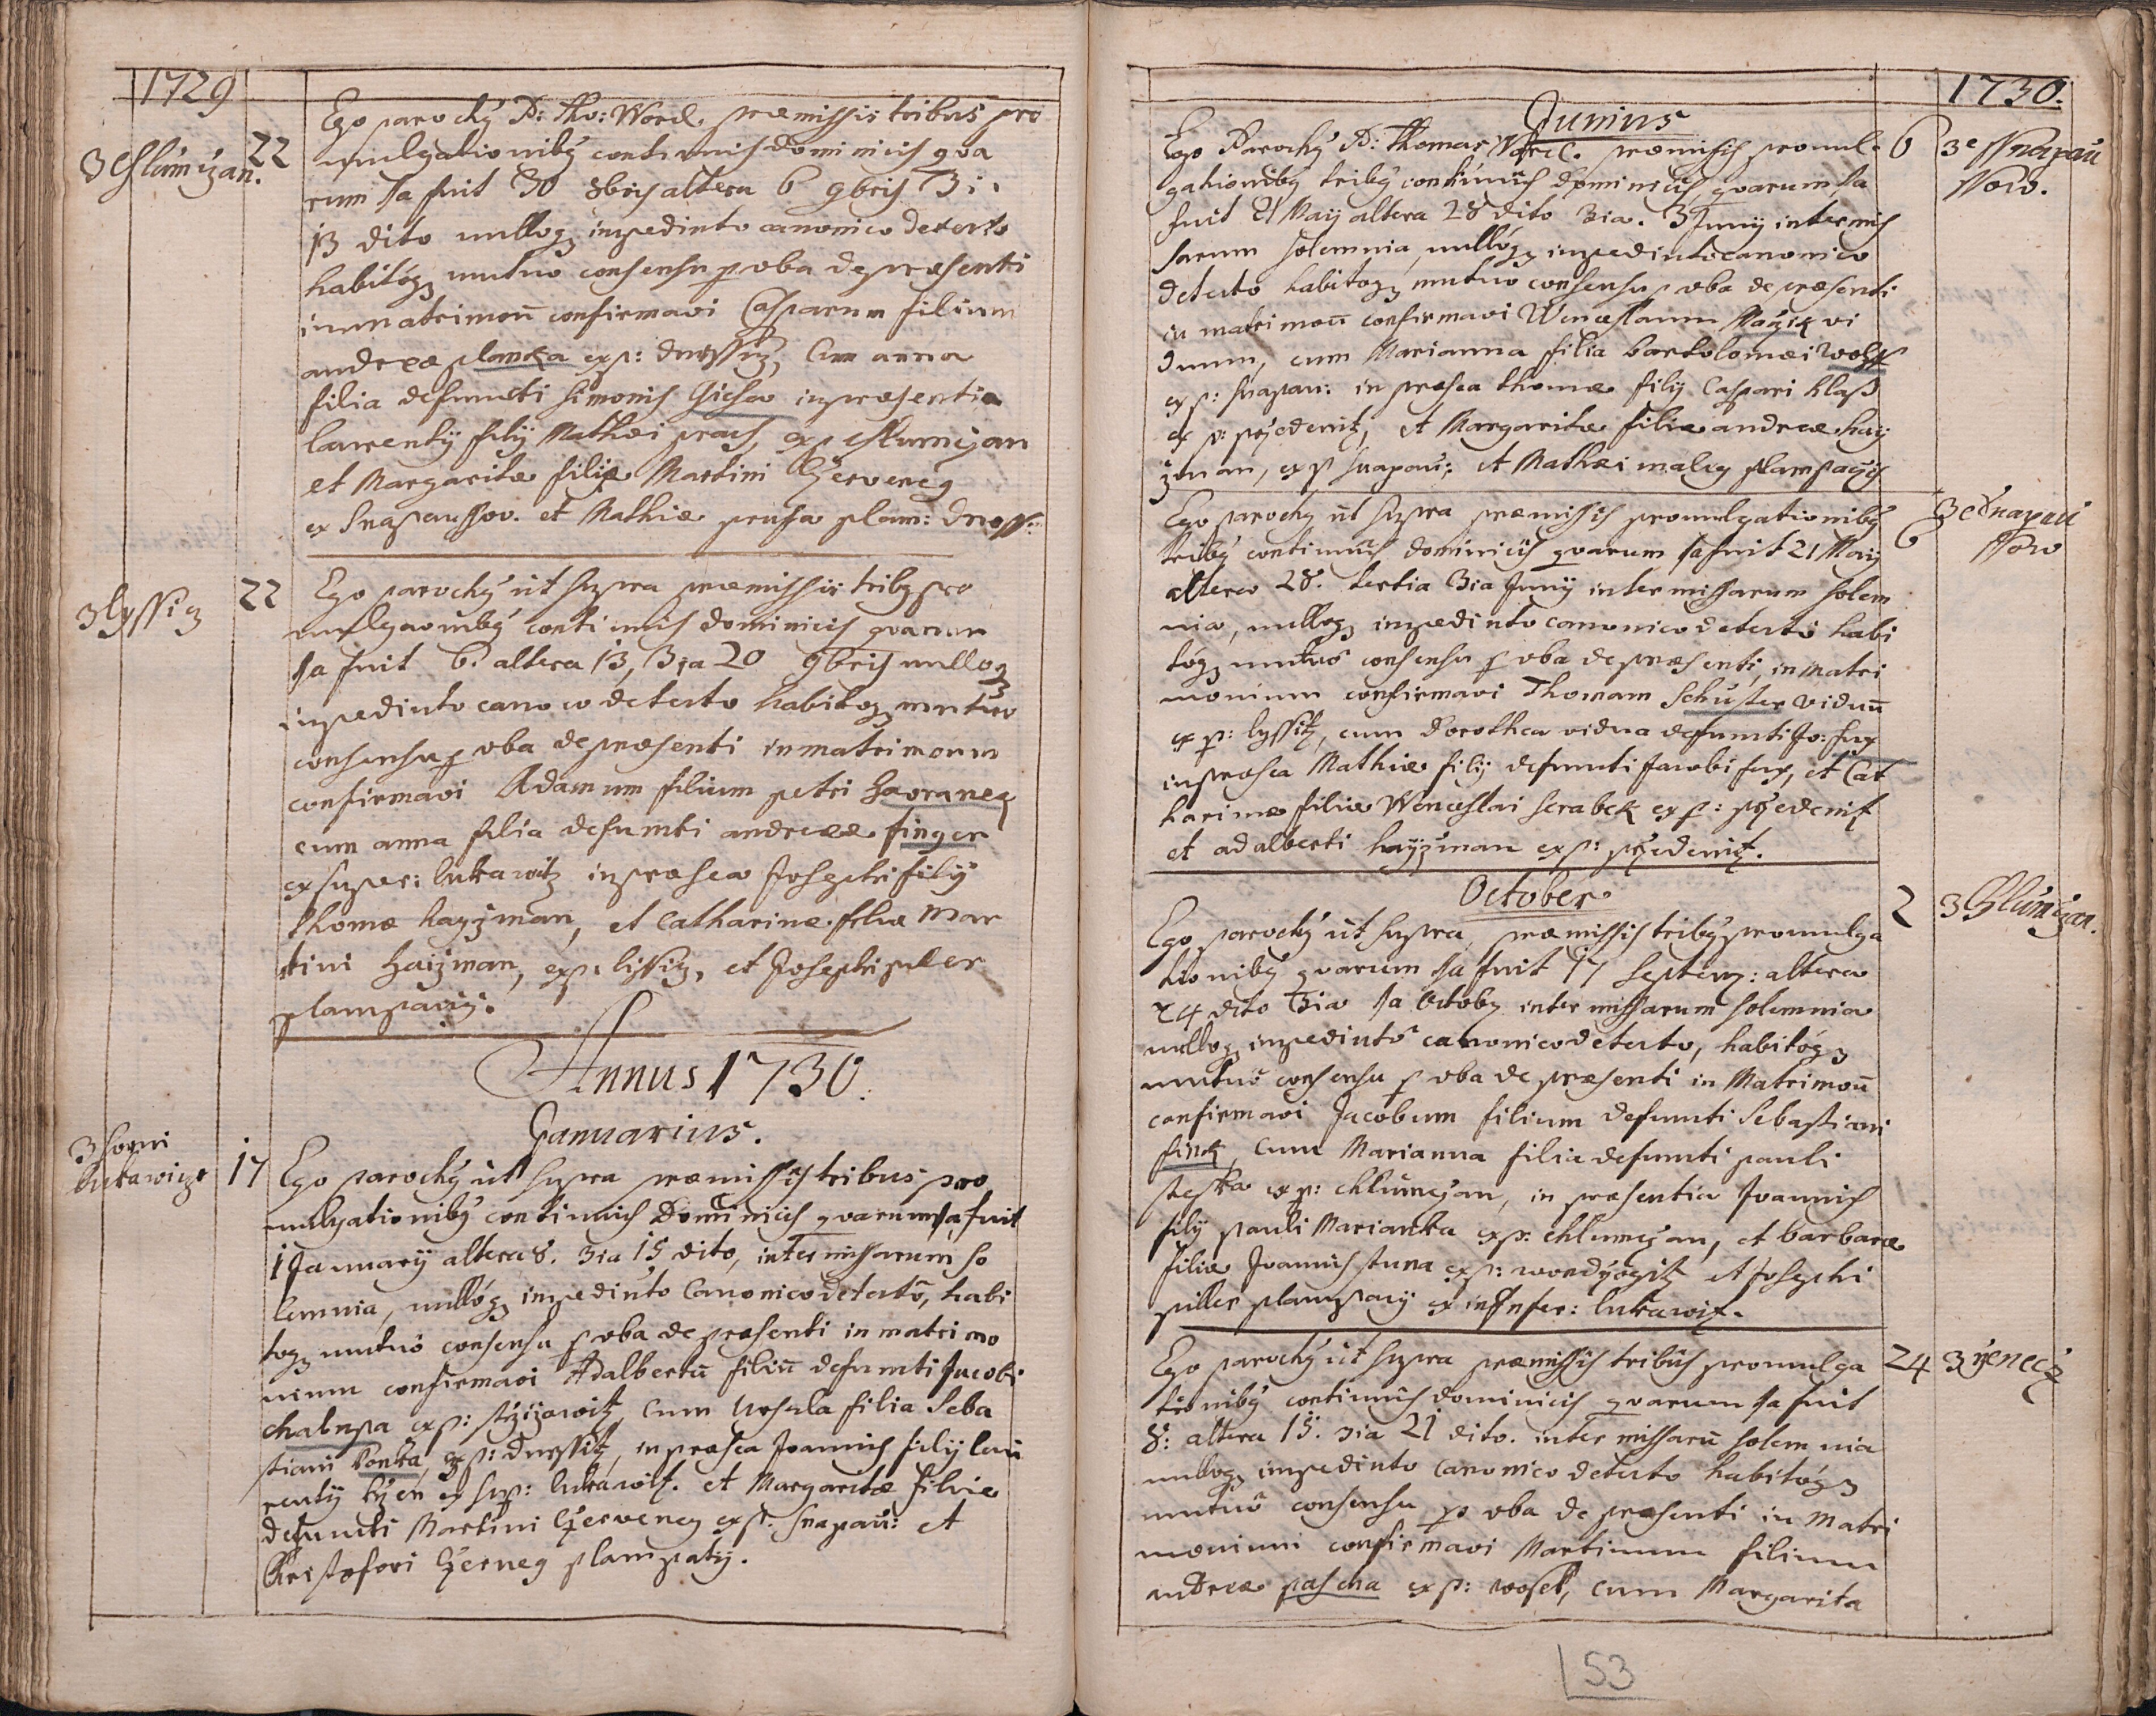 1729
3 Chlumczan. 22
Ego parochy D: Tho: Worel. præmissis tribus pro
mulgationiby continuis dominicis qva
rum 1a fuit 30 8bris altera 6 9bris 3i.
13 dito nulloq impedinto canonico detecto
habitóq mutuo consensu p vba de præsenti
in matrimon confirmavi Casparum filium
andreæ planka ex p: dnessitz, Cum anna
filia defuncti simonis in præsentia
laurenty fily Mathæi prach, ex p chlumczan
et Margaritæ filiæ Martini Czerveney
ex Snapaussov. et Mathiæ prusa plam: dness:
3 lyssicz 22
Ego parochy ut supra præmissis triby pro
mulgaoniby continuis dominicis qvarum
1a fuit 6. altera 13, 3ia 20 9bris nulloq
impedinto canoco detecto habitoq mutuo
consensu p vba de præsenti in matrimonm
confirmavi Adamum filium petri havraneg
cum anna filia defuncti andreæ finger
ex super: lukawitz in præsea Josephi fily
thomæ hayzman, et Catharinæ filiæ Mar
tini haizman, ex p. lissitz, et Josephi piller
plampaczy.
Annus 1730.
Januarius.
3 horni
lukawicze 17
Ego parochy ut supra præmissis tribus pro
mulgationiby continuis Dominicis qvarum 1a fuit
1 January altera 8. 3ia 15 dito, inter missarum so
lemnia, nullóq impedinto Canonico detecto, habi
toq mutuó consensu p vba de præsenti in matrimo
nium confirmavi Adalbertu filiu defuncti Jacobi
chalupa ex p: cum Ursula filia Seba
stiani ex p: dnessitz, in præsea Joannis fily lau
renty ex sup: lukawitz. et Margaritæ filiæ
defuncti Martini Czerveney ex p. snapau: et
Kristofori Czerney plampaty.
1730.
Junius
Ego Parochy D: Thomas Worel. præmissis promul 6 3e Snapau
gationiby triby continuis dominicis qvarum 1a ssow.
fuit 21 May altera 28 dito 3ia. 3 Juny inter mis
sarum solemnia, nullóq impedinto canonico
detecto habitoq mutuo consensu p vba de præsenti
in matrimon confirmavi Wenceslaum vi
duum, cum Marianna filia bartolomæi Wolff
ex p: snapau: in præsea thomæ fily Caspari klaß
ex p: przedenitz, et Margaritæ filiæ andreæ hay
zman, ex p snapau: et Mathæi maly plampaczy
Ego parochy ut supra præmissis promulgationiby 3e Snapau
triby continuis dominicis qvarum 1a fuit 21 May 6 ssow
altera 28. tertia 3ia Juny inter missarum solem
nia, nulloq impedinto canonico detecto habi
tóq mutuó consensu p vba de præsenti, in matri
monium confirmavi Thomam Schuster viduu
ex p: lyssitz, cum Dorothea vidua defuncti Jo: fux
in præsea Mathiæ fily defuncti Jacobi fux, et Cat
harinæ filiæ Wenceslai serabek ex p: przedenitz
et adalberti hayzman ex p: przedenitz.
October 2 3 Chlumczan.
Ego parochy ut supra, præmissis triby promulga
tioniby qvarum 1a fuit 17 septemb: altera
24 dito 3ia 1a octob inter missarum solemnia
nulloq impedintó canonico detecto, habitóq
mutuó consensu p vba de præsenti in Matrimon
confirmavi Jacobum filium defuncti Sebastiani
fink, Cum Marianna filia defuncti pauli
peska ex p: chlumczan, in præsentia Joannis
fily pauli Marianka ex p: chlumczan, et barbaræ
filiæ Joannis stuna ex p: et Josephi
piller plampaczy ex infer: lukawitz.
Ego parochy ut supra præmissis tribus promulga 24 3 yenecz
tioniby continuis dominicis qvarum 1a fuit
8: altera 15. 3ia 21 dito. inter missaru solemnia
nulloq impedinto canonico detecto habitóq
mutuó consensu p vba de præsenti in Matri
monium confirmavi Martinum filium
andreæ pascha ex p: wosek, cum Margarita
153